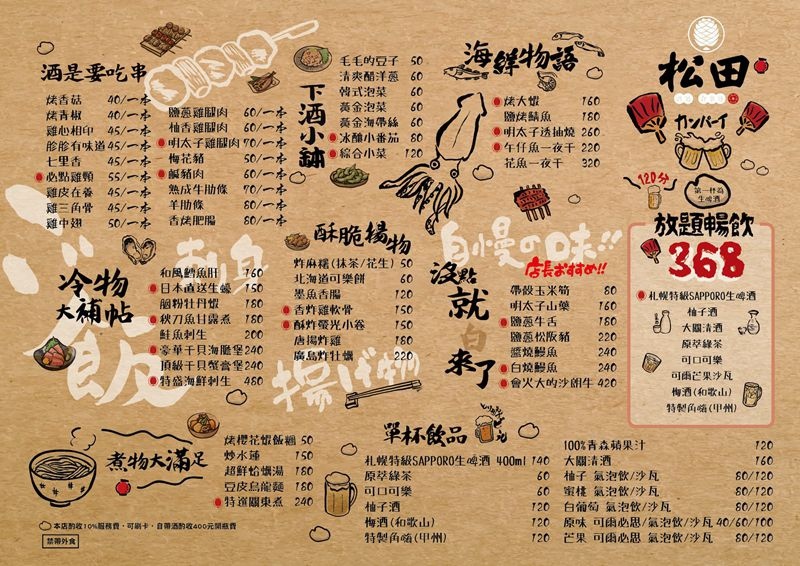 酒是要吃串
烤香菇 40/一本
烤青椒 40/一本
雞心相印 45/一本
胗胗有味道 45/一本
七里香 45/一本
必點雞頸 55/一本
雞皮在養 45/一本
雞三角骨 45/一本
雞中翅 50/一本
鹽蔥雞腿肉 60/一本
柚香雞腿肉 60/一本
明太子雞腿肉 70/一本
梅花豬 50/一本
鹹豬肉 60/一本
熟成牛肋條 70/一本
羊肋條 80/一本
香烤肥腸 80/一本
下酒小缽
毛毛的豆子 50
清爽醋洋蔥 60
韓式泡菜 60
黃金泡菜 60
黃金海帶絲 60
冰釀小番茄 80
綜合小菜 120
海鮮物語
烤大蝦 160
鹽烤鯖魚 180
明太子透抽燒 260
午仔魚一夜干 220
花魚一夜干 320
松田
カンパーイ
120分
第一杯為
生啤酒
放題暢飲
368
札幌特級SAPPORO生啤酒
柚子酒
大關清酒
原萃綠茶
可口可樂
可爾芒果沙瓦
梅酒(和歌山)
特製角嗨(甲州)
刺身
飯
冷物
大補帖
和風鱈魚肝 160
日本直送生蠔 150
胭粉牡丹蝦 180
秋刀魚甘露煮 180
鮭魚刺生 200
豪華干貝海膽堡 240
頂級干貝蟹膏堡 240
特盛海鮮刺生 480
酥脆揚物
炸麻糬(抹茶/花生) 50
北海道可樂餅 60
墨魚香腸 120
香炸雞軟骨 150
酥炸螢光小卷 150
唐揚炸雞 180
廣島炸牡蠣 220
揚げ物
自慢の味!!
店長おすすめ!!
沒點
就
白
來了
帶殼玉米筍 80
明太子山藥 160
鹽蔥牛舌 180
鹽蔥松阪豬 220
鹽燒鰻魚 240
白燒鰻魚 240
會火大的沙朗牛 420
煮物大滿足
烤櫻花蝦飯糰 50
炒水蓮 150
超鮮蛤蠣湯 180
豆皮烏龍麵 180
特選關東煮 240
單杯飲品
札幌特級SAPPORO生啤酒 400ml 140
原萃綠茶 60
可口可樂 60
柚子酒 120
梅酒(和歌山) 120
特製角嗨(甲州) 120
100%青森蘋果汁 120
大關清酒 160
柚子 氣泡飲/沙瓦 80/120
蜜桃 氣泡飲/沙瓦 80/120
白葡萄 氣泡飲/沙瓦 80/120
原味 可爾必思/氣泡飲/沙瓦 40/60/100
芒果 可爾必思 氣泡飲/沙瓦 80/120
本店酌收10%服務費，可刷卡，自帶酒酌收400元開瓶費
禁帶外食